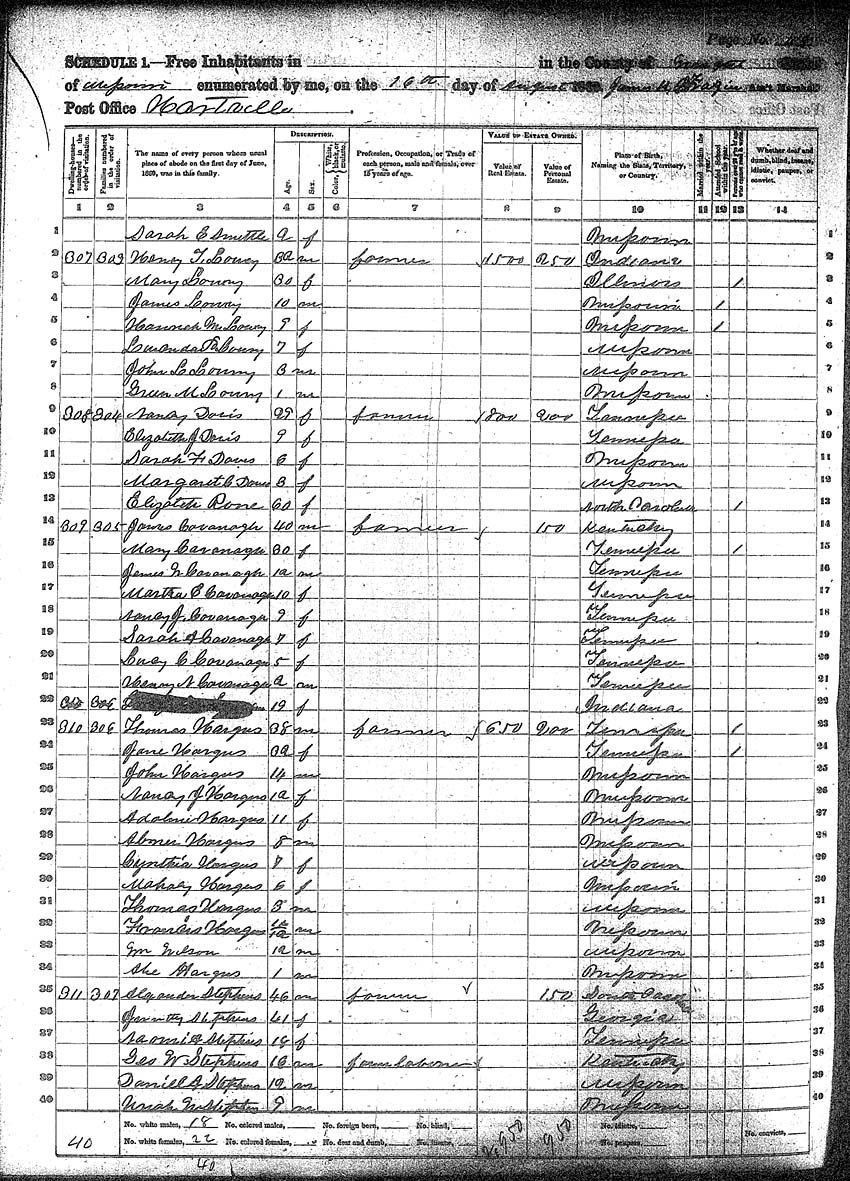 Page No.
SCHEDULE 1.—Free Inhabitants in in the County of
of Missouri enumerated by me, on the 16th day of August 1860. James Ass't Marshal.
Post Office Hartville.
DESCRIPTION. VALUE OF ESTATE OWNED.
Dwelling-houses—numbered in the order of visitation. Families numbered in the order of visitation. The name of every person whose usual place of abode on the first day of June, 1860, was in this family. Age. Sex. Color, White, black, or mulatto. Profession, Occupation, or Trade of each person, male and female, over 15 years of age. Value of Real Estate. Value of Personal Estate. Place of Birth, Naming the State, Territory, or Country. Married within the year. Attended School within the year. Whether deaf and dumb, blind, insane, idiotic, pauper, or convict.
1 2 3 4 5 6 7 8 9 10 11 12 13 14
1 Sarah E Smettle 2 f Missouri 1
2 307 303 Henry T Loucy 32 m farmer 1500 250 Indiana 2
3 Mary Loucy 30 f Illinois 1 3
4 James Loucy 10 m Missouri 1 4
5 Hannah M Loucy 9 f Missouri 1 5
6 Loucy 7 f Missouri 6
7 John L Loucy 3 m Missouri 7
8 Green M Loucy 1 m Missouri 8
9 308 304 Nancy Davis 29 f farmer 800 200 Tennessee 9
10 Elizabeth J Davis 9 f Tennessee 10
11 Sarah F Davis 6 f Missouri 11
12 Margaret C Davis 3 f Missouri 12
13 Elizabeth Rone 60 f North Carolina 1 13
14 309 305 James Cavanagh 40 m farmer 150 Kentucky 14
15 Mary Cavanagh 30 f Tennessee 1 15
16 James W Cavanagh 12 m Tennessee 16
17 Martha E Cavanagh 10 f Tennessee 17
18 Nancy J Cavanagh 9 f Tennessee 18
19 Sarah A Cavanagh 7 f Tennessee 19
20 Lucy C Cavanagh 5 f Tennessee 20
21 Henry N Cavanagh 2 m Tennessee 21
22 310 306 19 f Indiana 22
23 310 306 Thomas Hargus 38 m farmer 650 200 Tennessee 1 23
24 Jane Hargus 32 f Tennessee 1 24
25 John Hargus 14 m Missouri 25
26 Nancy J Hargus 12 f Missouri 26
27 Adaline Hargus 11 f Missouri 27
28 Abner Hargus 8 m Missouri 28
29 Cynthia Hargus 7 f Missouri 29
30 Mahaly Hargus 6 f Missouri 30
31 Thomas Hargus 3 m Missouri 31
32 Francis Hargus m Missouri 32
33 Wm Wilson 12 m Missouri 33
34 Hargus 1 m Missouri 34
35 311 307 Alexander Stephens 46 m farmer 150 South Carolina 35
36 Stephens 41 f Georgia 36
37 Naomi Stephens 18 f Tennessee 37
38 Geo W Stephens 16 m farm laborer Kentucky 38
39 Daniel A Stephens 12 m Missouri 39
40 Uriah M Stephens 9 m Missouri 40
No. white males, 18 No. colored males, No. foreign born, No. blind, No. idiotic,
40 No. white females, 22 No. colored females, No. deaf and dumb, No. insane, 2,950 950 No. paupers, No. convicts,
40